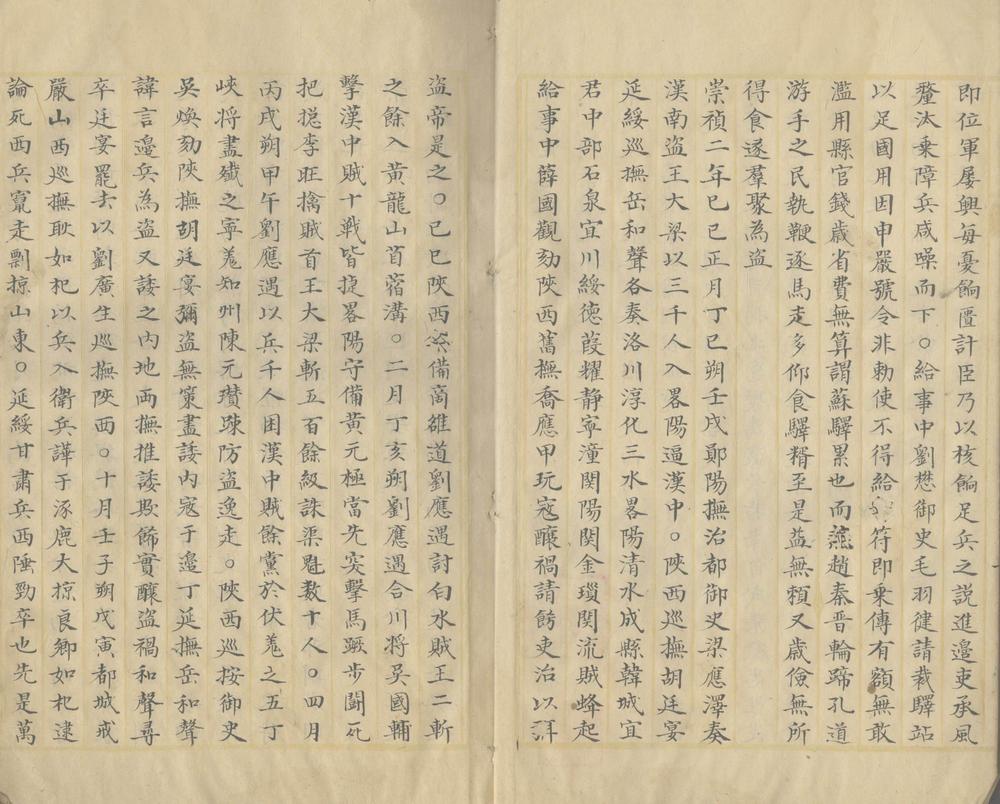 即位軍屢興每憂餉匱計臣乃以核餉足兵之說進邉吏承風
釐汰乗障兵咸噪而下○給事中劉懋御史毛羽徤請裁驛站
以足國用因申嚴號令非勅使不得給符即乗傳有額無敢
濫用縣官錢歳省費無算謂蘇驛累也而燕趙秦晋輪蹄孔道
游手之民執鞭逐馬走多仰食驛糈至是益無頼又歳儉無所
得食遂羣聚為盗
崇禎二年已已正月丁已朔壬戌鄖陽撫治都御史梁應澤奏
漢南盗王大梁以三千人入畧陽逼漢中○陝西巡撫胡廷宴
延綏巡撫岳和聲各奏洛川淳化三水畧陽清水成縣韓城宜
君中部石泉宜川綏徳葭耀静寜潼関陽関金瑣関流賊蜂起
給事中薛國觀劾陝西舊撫喬應甲玩寇釀禍請飭吏治以弭
盗帝是之○已已陝西兵備商雒道劉應遇討白水賊王二斬
之餘入黄龍山苜蓿溝○二月丁亥朔劉應遇合川將吳國輔
擊漢中賊十戰皆捷畧陽守備黄元極當先突擊馬蹶步鬪死
把捴李旺擒賊首王大梁斬五百餘級誅渠魁数十人○四月
丙戌朔甲午劉應遇以兵千人困漢中賊餘黨於伏羗之五丁
峽将盡殲之寜羗知州陳元瓚踈防盗逸走○陝西巡按御史
吳煥劾陝撫胡廷宴彌盗無策盡諉内寇于邉丁延撫岳和聲
諱言邉兵為盗又諉之内地両撫推諉欺餙實釀盗禍和聲尋
卒廷宴罷去以劉廣生巡撫陝西○十月壬子朔戊寅都城戒
嚴山西巡撫耿如杞以兵入衛兵譁于涿鹿大掠良鄉如杞逮
論死西兵竄走剽掠山東○延綏甘肅兵西陲勁卒也先是萬